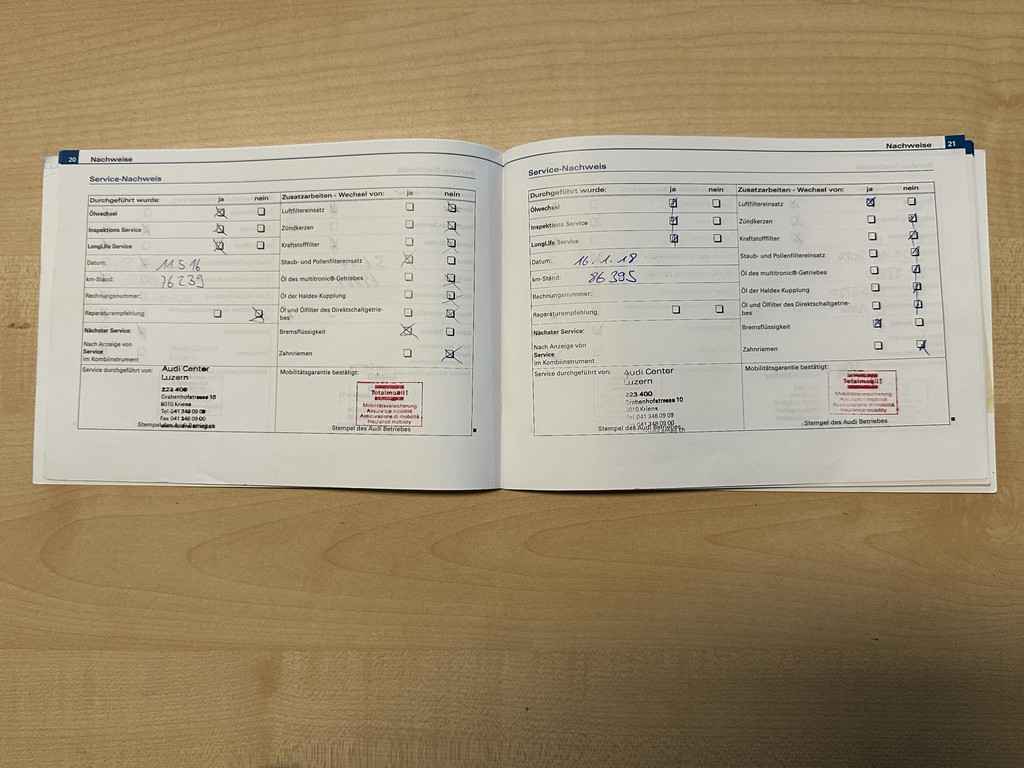 20 Nachweise
Service-Nachweis
Durchgeführt wurde: ja nein
Ölwechsel
Inspektions Service
LongLife Service
Datum: 11.5.16
km-Stand: 76 239
Rechnungsnummer:
Reparaturempfehlung:
Nächster Service:
Nach Anzeige von
Service
im Kombiinstrument
Service durchgeführt von:
Audi Center
Luzern
223 400
Grabenhofstrasse 10
6010 Kriens
Tel. 041 348 09 09
Fax 041 348 09 00
Stempel des Audi Betriebes
Zusatzarbeiten - Wechsel von: ja nein
Luftfiltereinsatz
Zündkerzen
Kraftstofffilter
Staub- und Pollenfiltereinsatz
Öl des multitronic®-Getriebes
Öl der Haldex Kupplung
Öl und Ölfilter des Direktschaltgetrie-
bes
Bremsflüssigkeit
Zahnriemen
Mobilitätsgarantie bestätigt:
Totalmobil!
Mobilitätsversicherung
Assurance mobilité
Assicurazione di mobilità
Insurance mobility
Nachweise 21
Service-Nachweis
Durchgeführt wurde: ja nein
Ölwechsel
Inspektions Service
LongLife Service
Datum: 16.1.18
km-Stand: 86 395
Rechnungsnummer:
Reparaturempfehlung:
Nächster Service:
Nach Anzeige von
Service
im Kombiinstrument
Service durchgeführt von:
Audi Center
Luzern
223 400
Grabenhofstrasse 10
6010 Kriens
Tel. 041 348 09 09
041 348 09 00
Stempel des Audi Betriebes
Zusatzarbeiten - Wechsel von: ja nein
Luftfiltereinsatz
Zündkerzen
Kraftstofffilter
Staub- und Pollenfiltereinsatz
Öl des multitronic®-Getriebes
Öl der Haldex Kupplung
Öl und Ölfilter des Direktschaltgetrie-
bes
Bremsflüssigkeit
Zahnriemen
Mobilitätsgarantie bestätigt:
Totalmobil!
Mobilitätsversicherung
Assurance mobilité
Assicurazione di mobilità
Insurance mobility
Stempel des Audi Betriebes